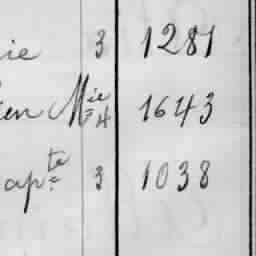 ie 3 1281
en Mie 4 1643
apte 3 1038